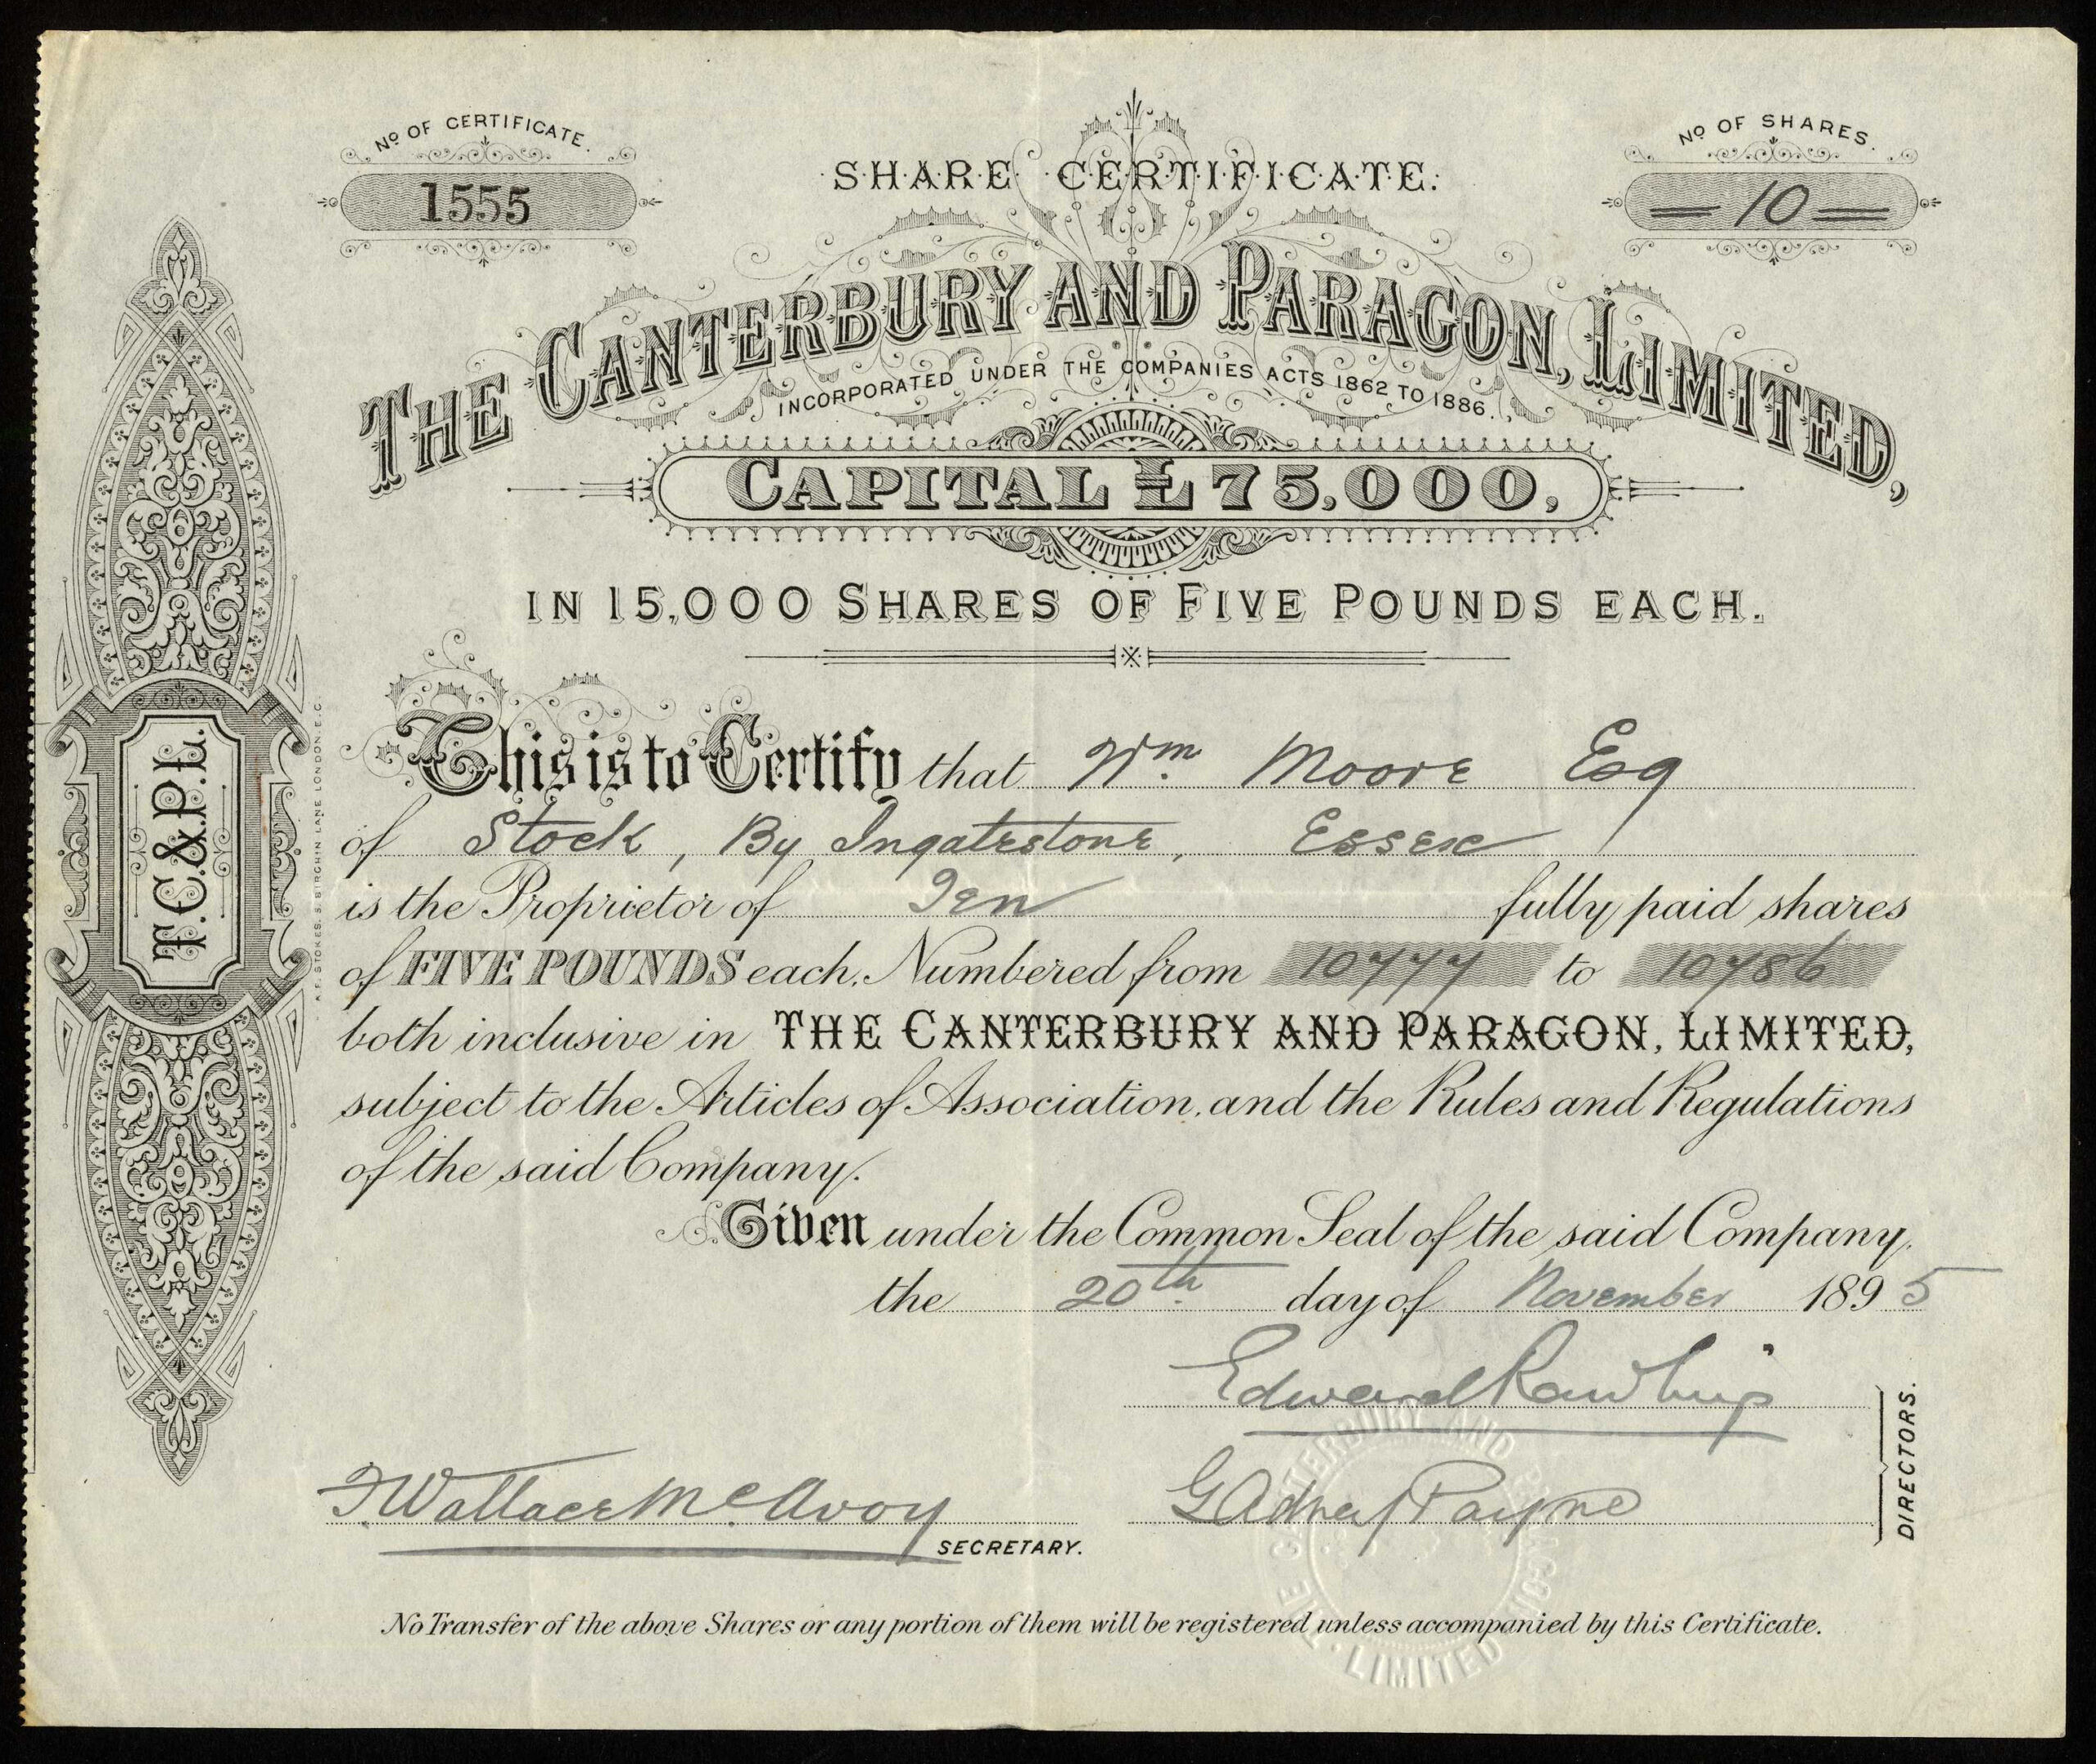 No OF CERTIFICATE.
1555
No OF SHARES.
10
SHARE CERTIFICATE.
THE CANTERBURY AND PARAGON, LIMITED,
INCORPORATED UNDER THE COMPANIES ACTS 1862 TO 1886.
CAPITAL £75,000,
IN 15,000 SHARES OF FIVE POUNDS EACH.
This is to Certify that Wm. Moore Esq
of Stock, By Ingatestone, Essex
is the Proprietor of Ten fully paid shares
of FIVE POUNDS each. Numbered from 10777 to 10786
both inclusive in THE CANTERBURY AND PARAGON, LIMITED,
subject to the Articles of Association, and the Rules and Regulations
of the said Company.
Given under the Common Seal of the said Company,
the 20th day of November 1895
Edward
Payne
DIRECTORS.
Wallace McAvoy
SECRETARY.
No Transfer of the above Shares or any portion of them will be registered unless accompanied by this Certificate.
T.C.&P.L.
A.F. STOKES. 3. BIRCHIN LANE LONDON. E.C.
THE CANTERBURY AND PARAGON LIMITED